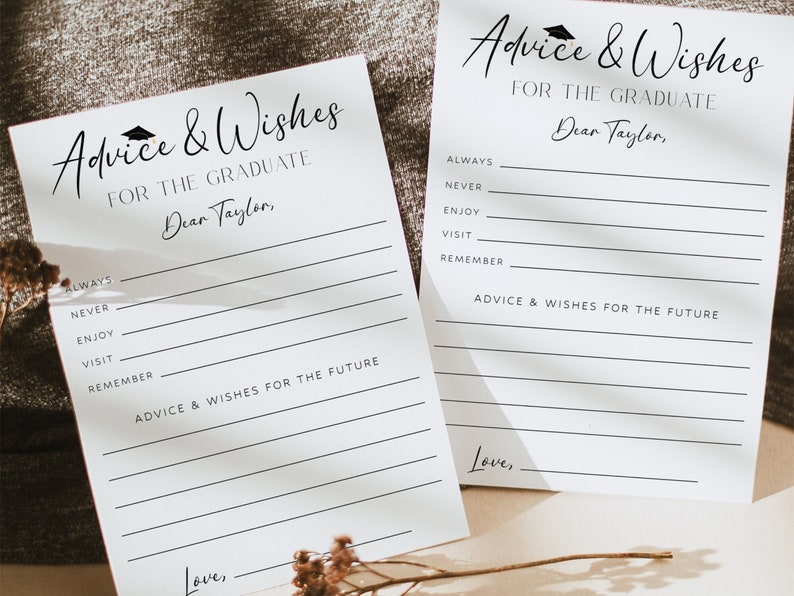 Advice & Wishes
FOR THE GRADUATE
Dear Taylor,
ALWAYS
NEVER
ENJOY
VISIT
REMEMBER
ADVICE & WISHES FOR THE FUTURE
Love,
Advice & Wishes
FOR THE GRADUATE
Dear Taylor,
ALWAYS
NEVER
ENJOY
VISIT
REMEMBER
ADVICE & WISHES FOR THE FUTURE
Love,